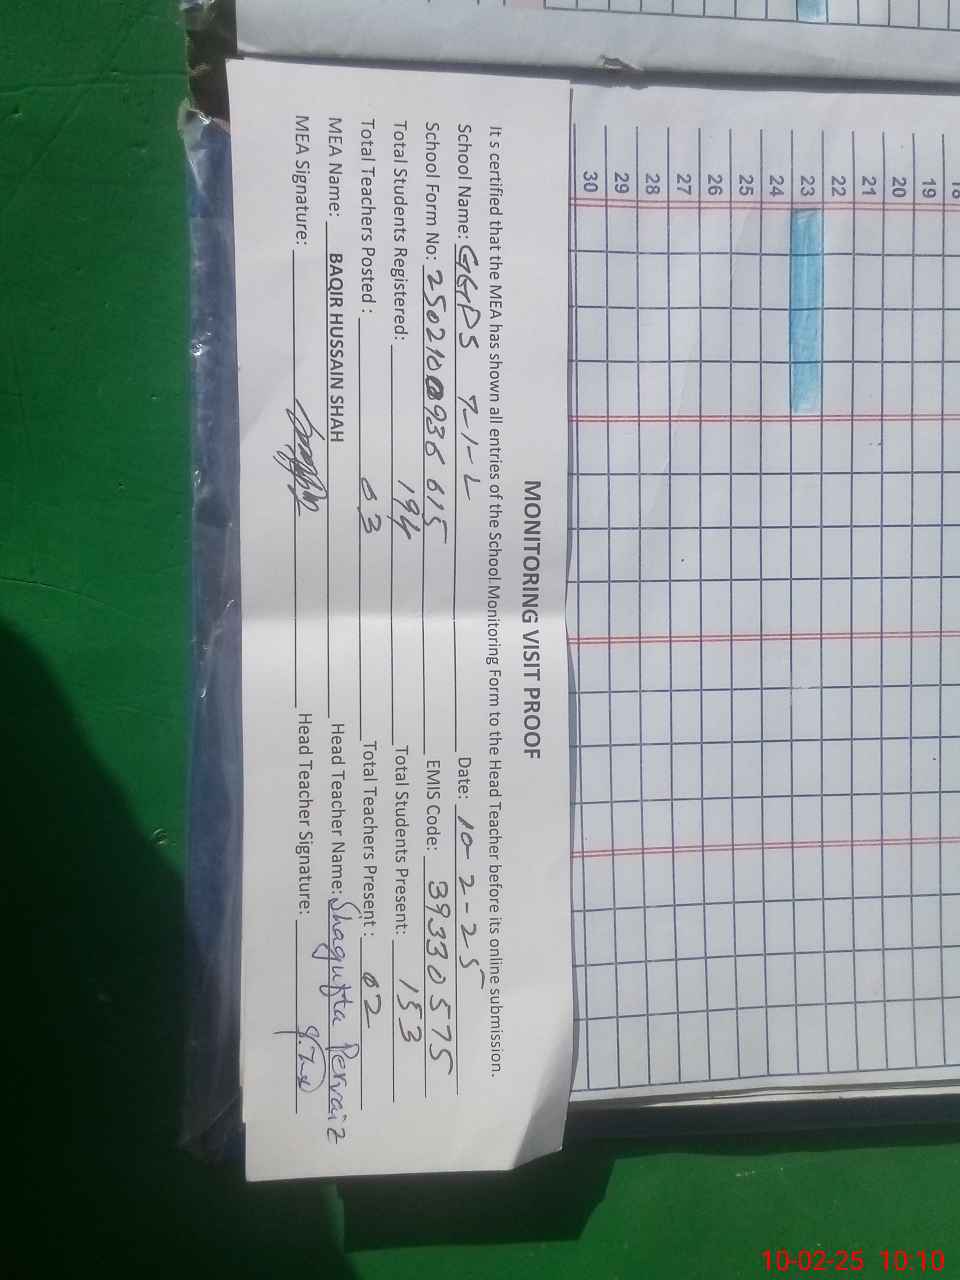 MONITORING VISIT PROOF
It s certified that the MEA has shown all entries of the School Monitoring Form to the Head Teacher before its online submission.
School Name: GGPS 7-1-L Date: 10-2-25
School Form No: 2502100936615 EMIS Code: 39330575
Total Students Registered: 194 Total Students Present: 153
Total Teachers Posted : 03 Total Teachers Present : 02
MEA Name: BAQIR HUSSAIN SHAH Head Teacher Name: Shagufta Pervaiz
MEA Signature: Head Teacher Signature:
18
19
20
21
22
23
24
25
26
27
28
29
30
10-02-25 10:10